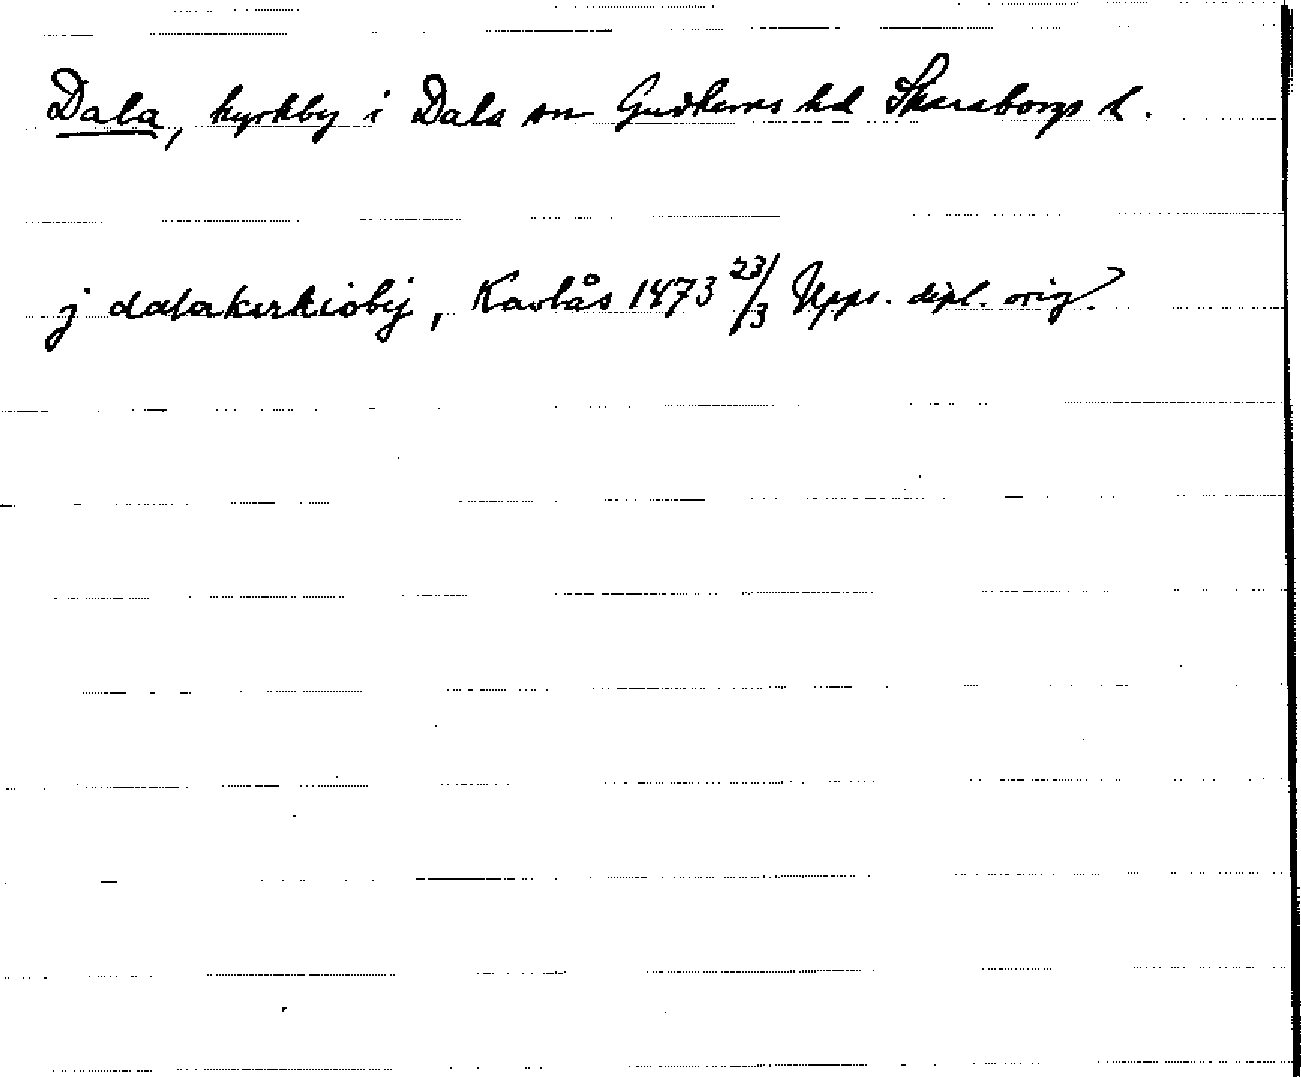 Dala, kyrkby i Dala sn Gudhems hd Skaraborgs l.
j dalakirkiobij, Kavlås 1473 23/3 Upps. dipl. orig.